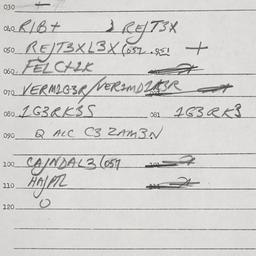 030
040 R1B+ REJT3X
050 REJT3XL3X(057 .051 +
060 FELC+2K
070 VERM1G3R/VER2MD2K3R
080 1G3RK3S 081 1G3RK3
090 Q ALC C3 2AM3N
100 CAJNDAL3(057
110 HAJPTL
120 O